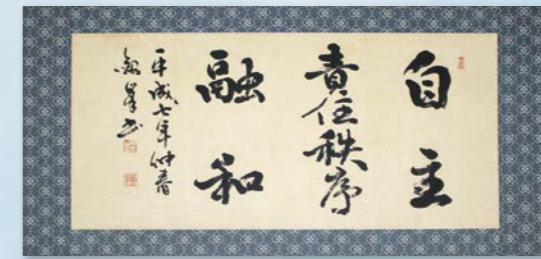 自主
責任秩序
融和
平成七年仲春